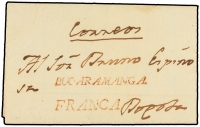 Correos
Al Sōr Bruno Espino
sa
BUCARAMANGA.
FRANCA Bogota